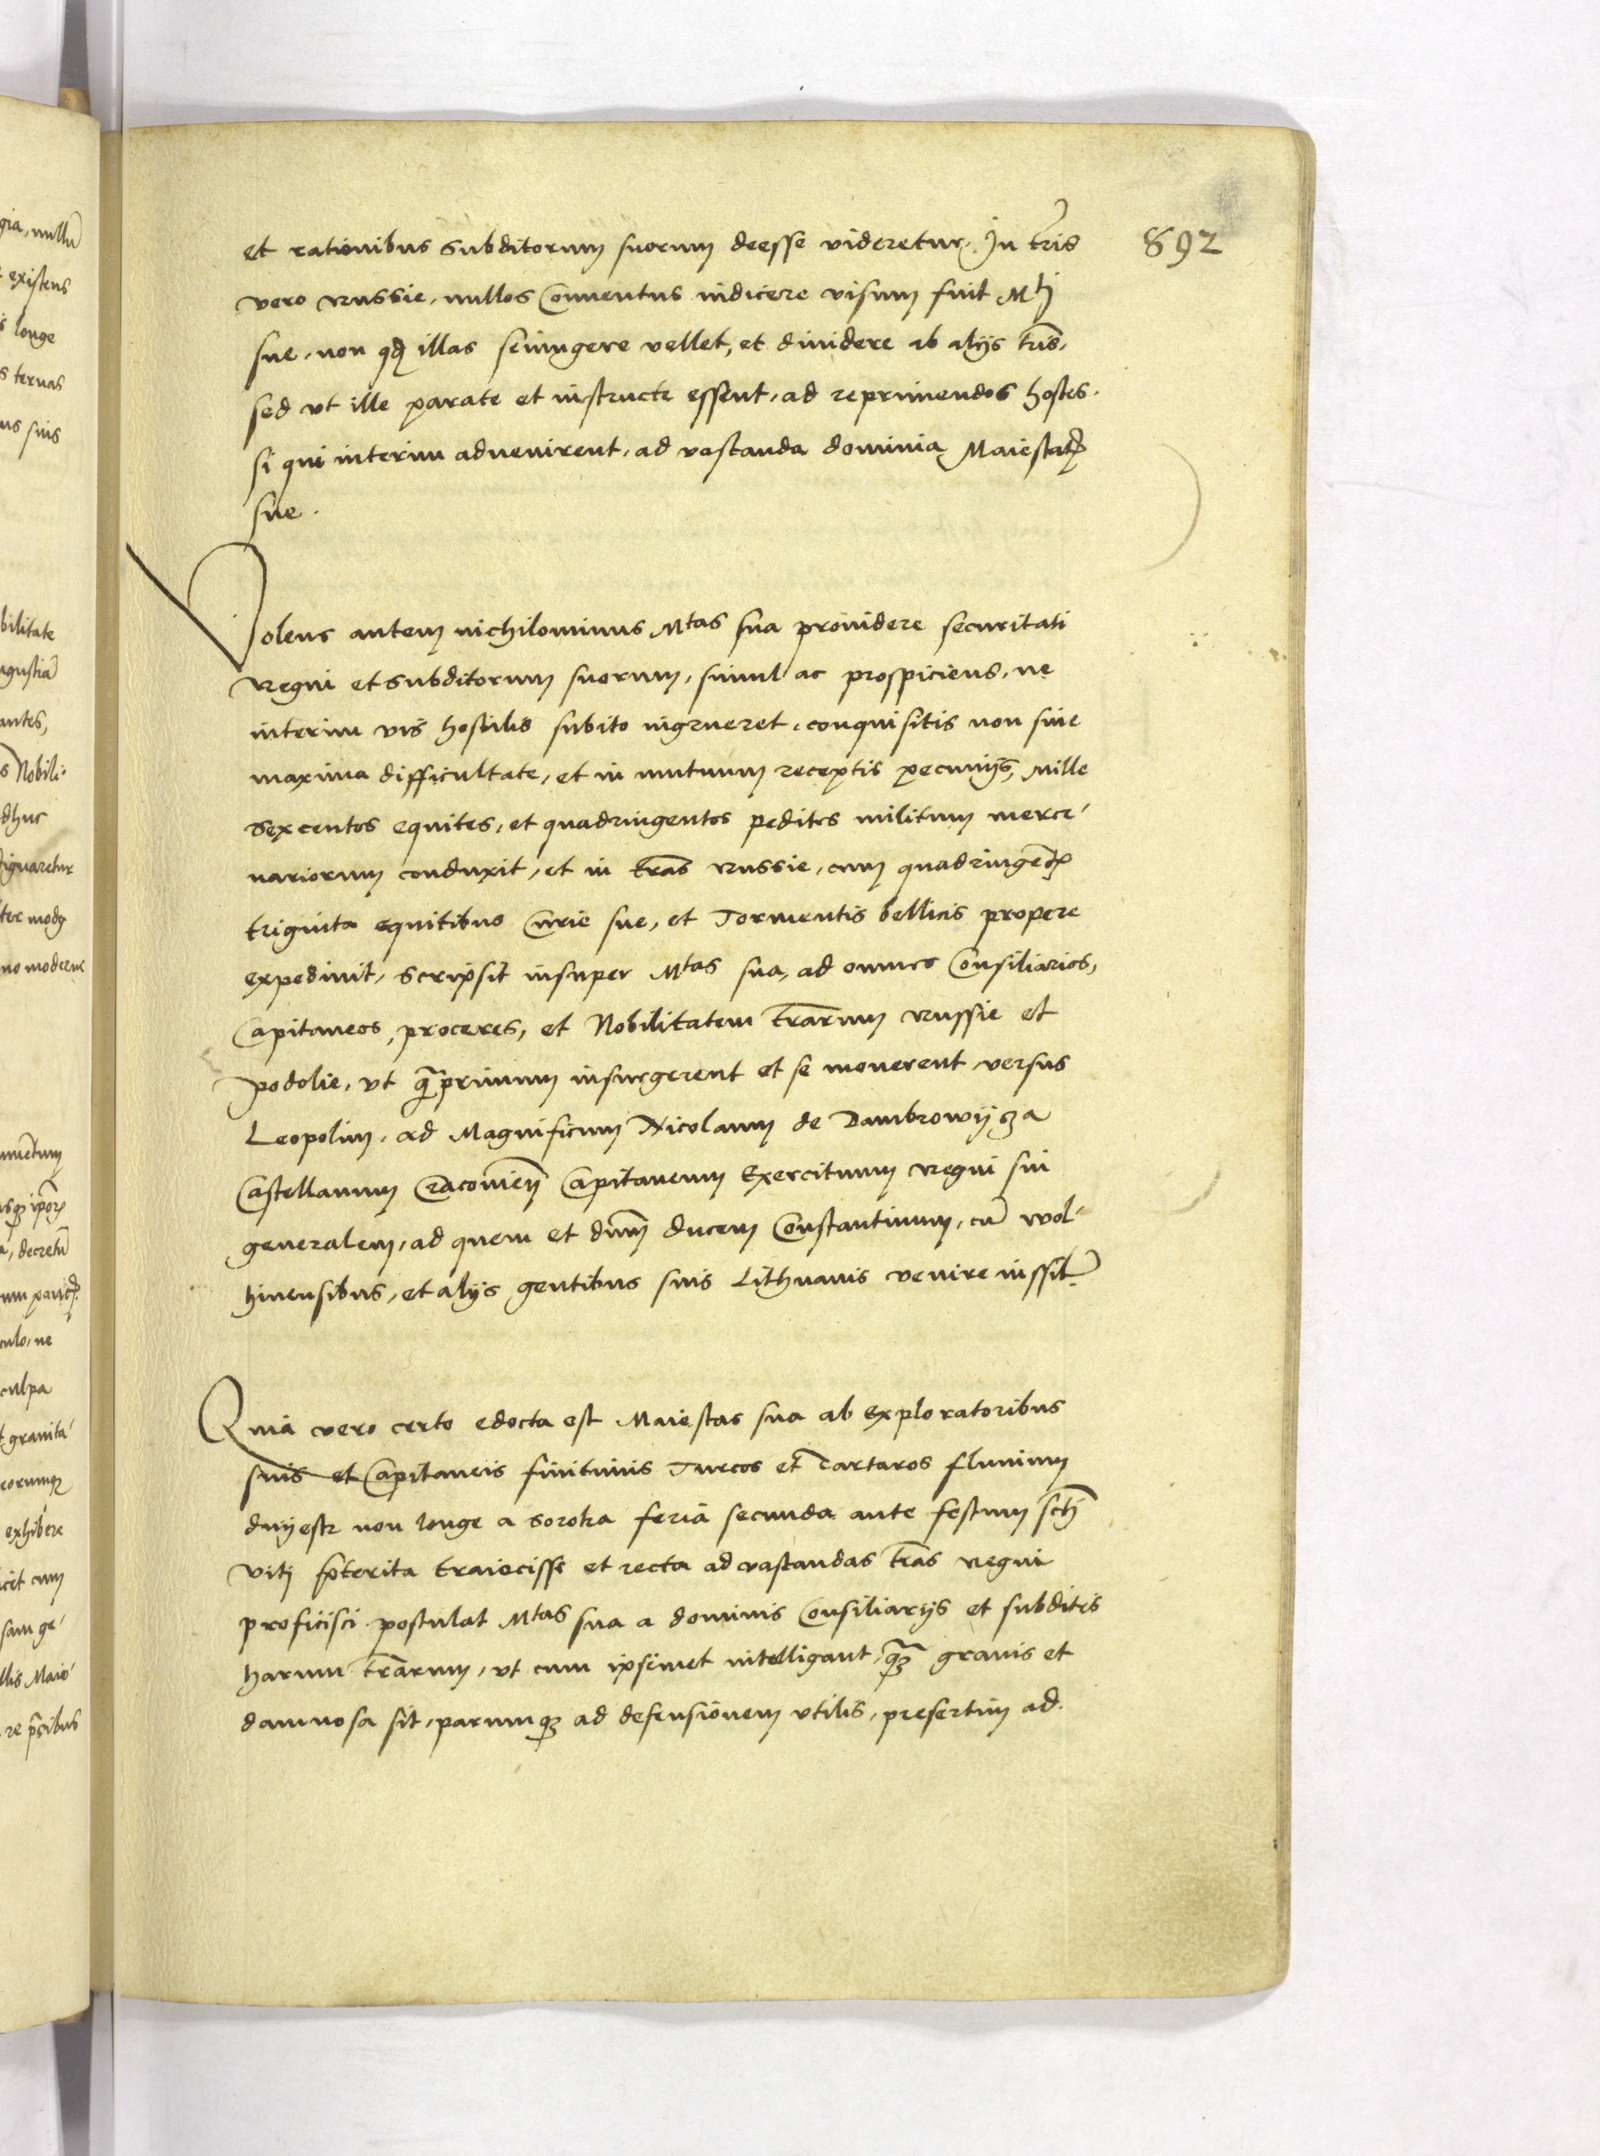 892
et rationibus subditorum suorum deesse videretur. In tris
vero Russie, nullos Conuentus indicere visum fuit Mti
sue, non qd illas seiungere vellet, et diuidere ab alijs tris,
sed vt ille parate et instructe essent, ad reprimendos hostes.
si qui interim aduenirent, ad vastanda dominia Maiestatis
sue.
Volens autem nichilominus Mtas sua prouidere securitati
Regni et subditorum suorum, simul ac prospiciens, ne
interim vis hostilis subito ingrueret, conquisitis non sine
maxima difficultate, et in mutuum receptis pecunijs, Mille
sexcentos equites, et quadringentos pedites militum merce-
nariorum conduxit, et in tras Russie, cum quadringentis
triginta equitibus Curie sue, et Tormentis bellicis propere
expediuit, scripsit insuper Mtas sua, ad omnes Consiliarios,
Capitaneos, proceres, et Nobilitatem trarum Russie et
podolie, vt qprimum insurgerent et se mouerent versus
Leopolim, ad Magnificum Nicolaum de Dambrowijcza
Castellanum Cracouien Capitaneum Exercituum Regni sui
generalem, ad quem et dnm ducem Constantinum, cu wol-
hinensibus, et alijs gentibus suis Lithuanis venire iussit.
Quia vero certo edocta est Maiestas sua ab Exploratoribus
suis et Capitaneis finitimis Turcos et Tartaros fluuium
dnijestr non longe a soroka feria secunda ante festum scti
viti pterita traiecisse et recta ad vastandas tras Regni
proficisci postulat Mtas sua a dominis Consiliarijs et subditis
harum trarum, vt cum ipsimet intelligant, qz grauis et
damnosa sit, parumqz ad defensionem vtilis, presertim ad
gia, nullu
existens
longe
ternas
suis
bilitate
ngustia
antes,
Nobili-
dhuc
ignaretur
modo
no moderne
decretu
culo, ne
culpa
grauita-
eorumqz
exhibere
cum
sam ge-
llis Maio-
re psibus